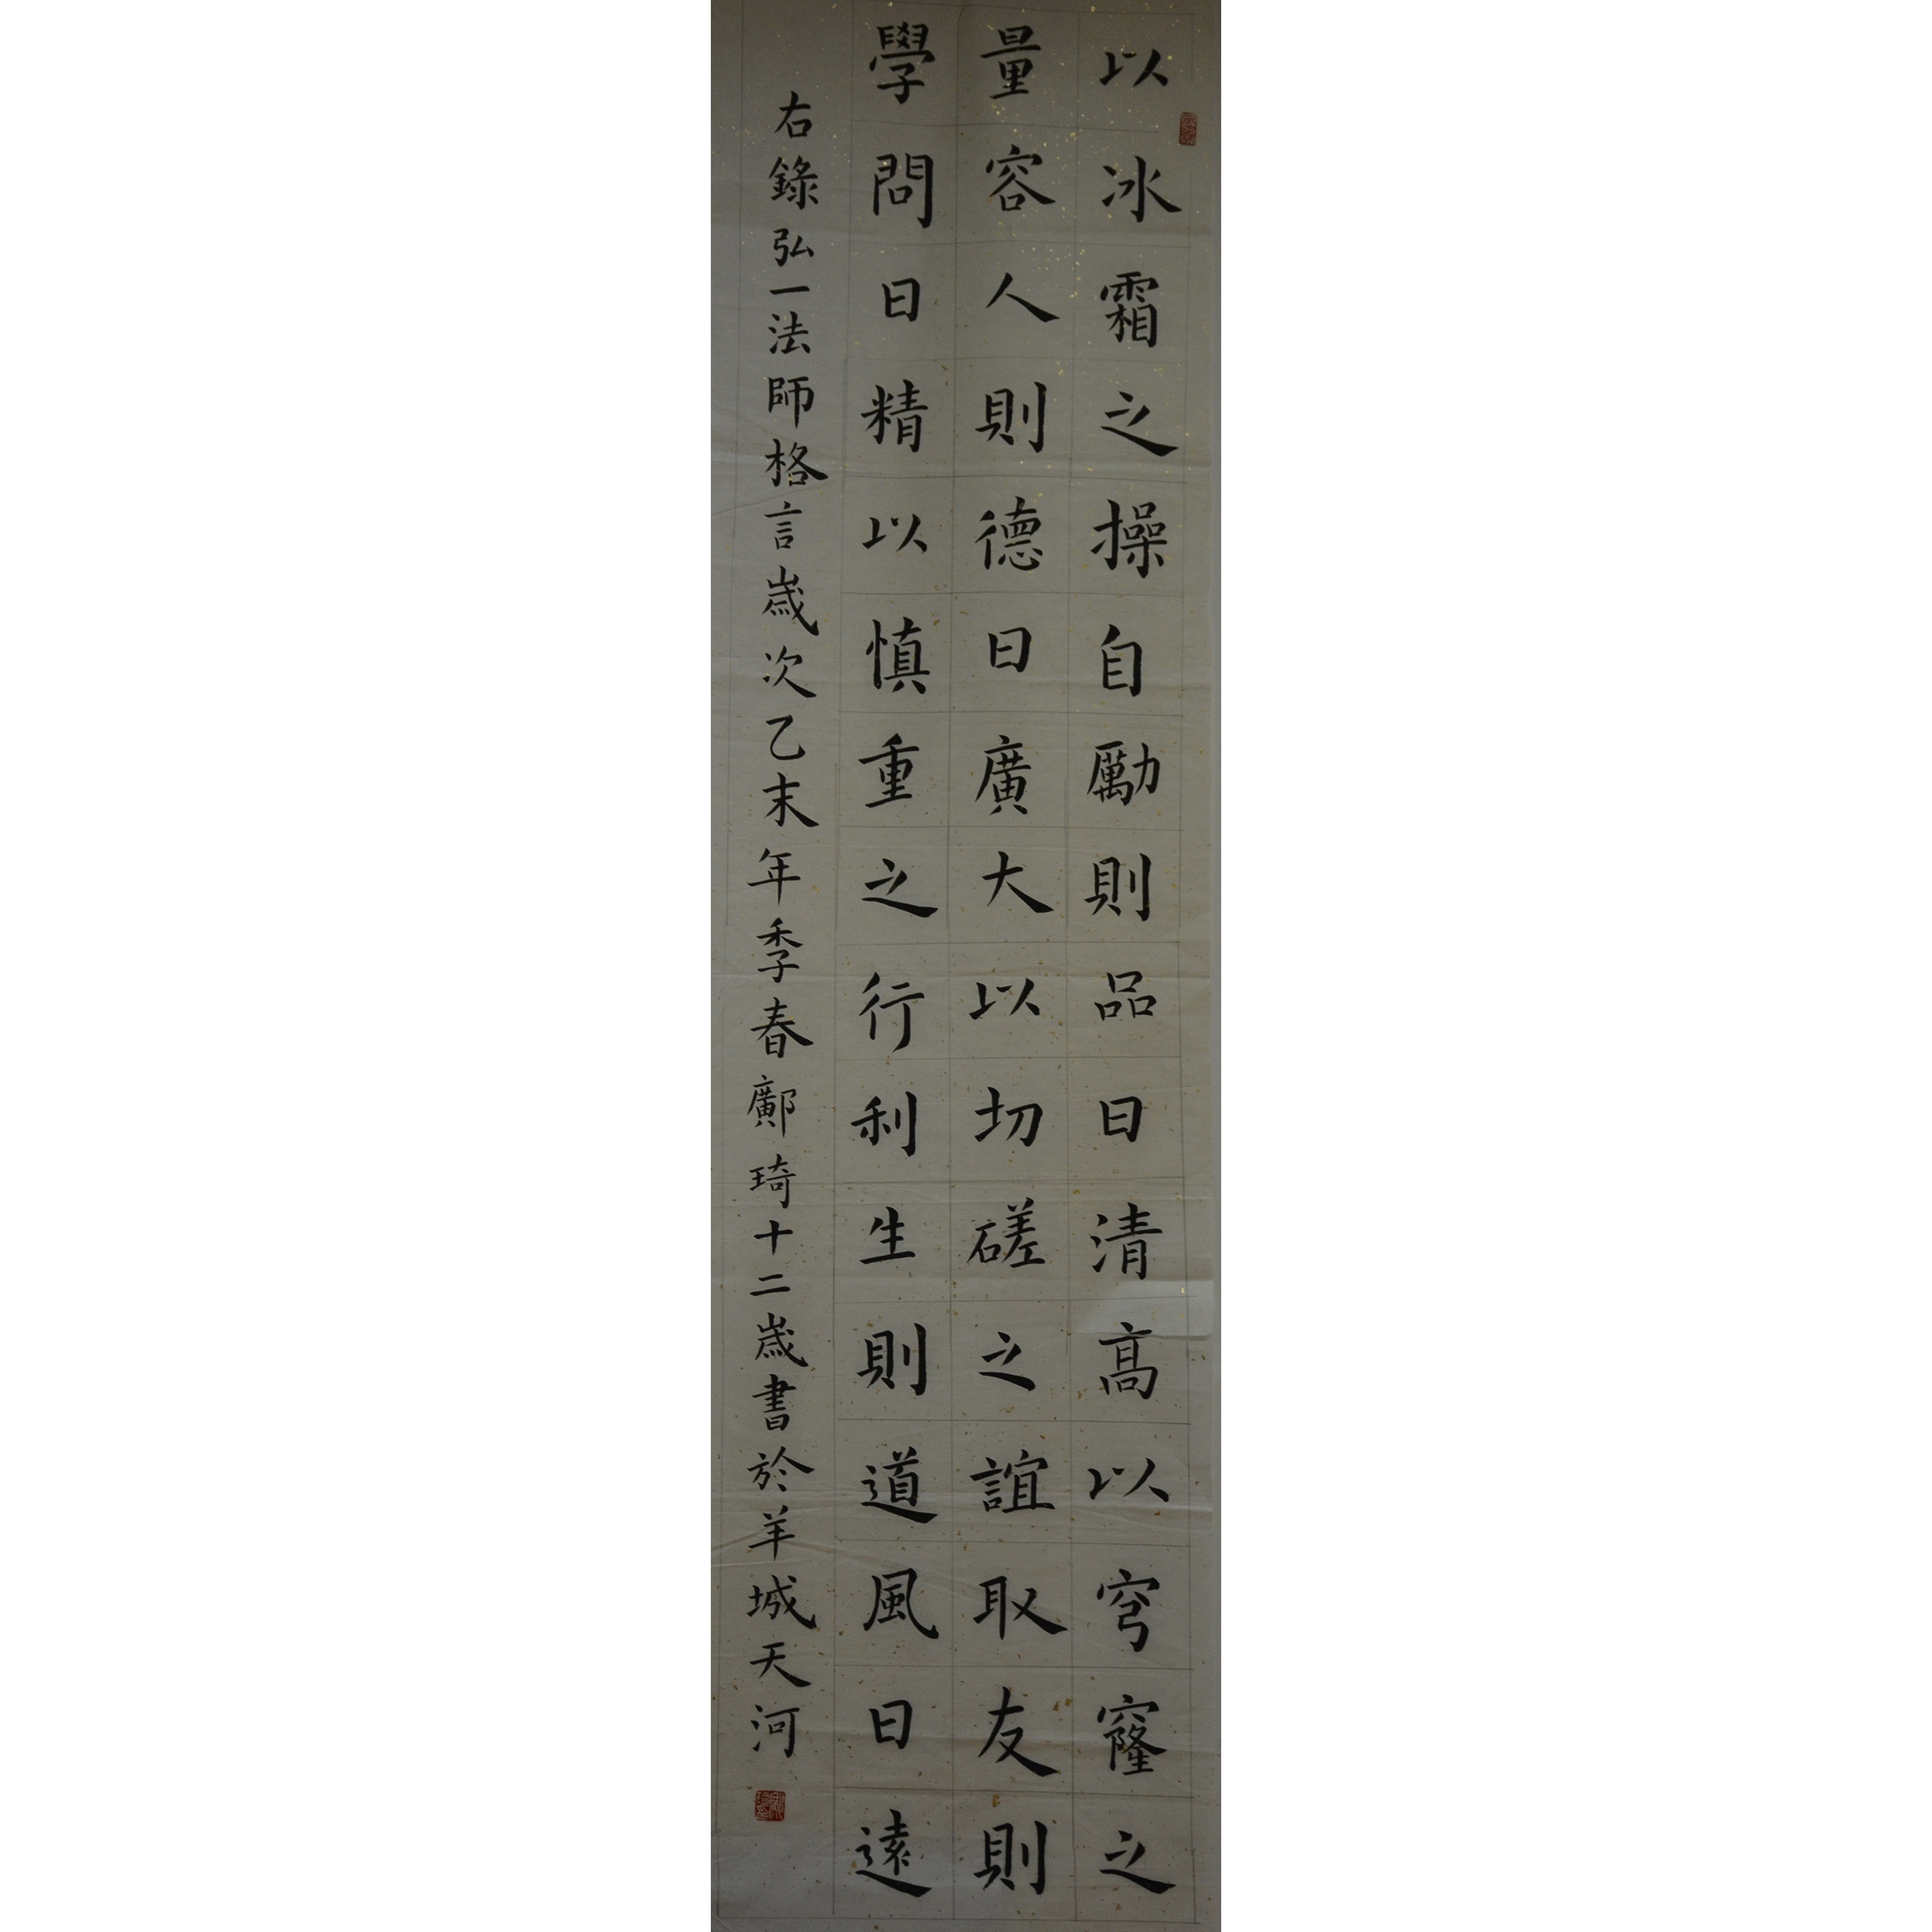 以冰霜之操自勵則品日清高以穹窿之
量容人則德日廣大以切磋之誼取友則
學問日精以慎重之行利生則道風日遠
右錄弘一法師格言歲次乙末年季春鄺琦十二歲書於羊城天河